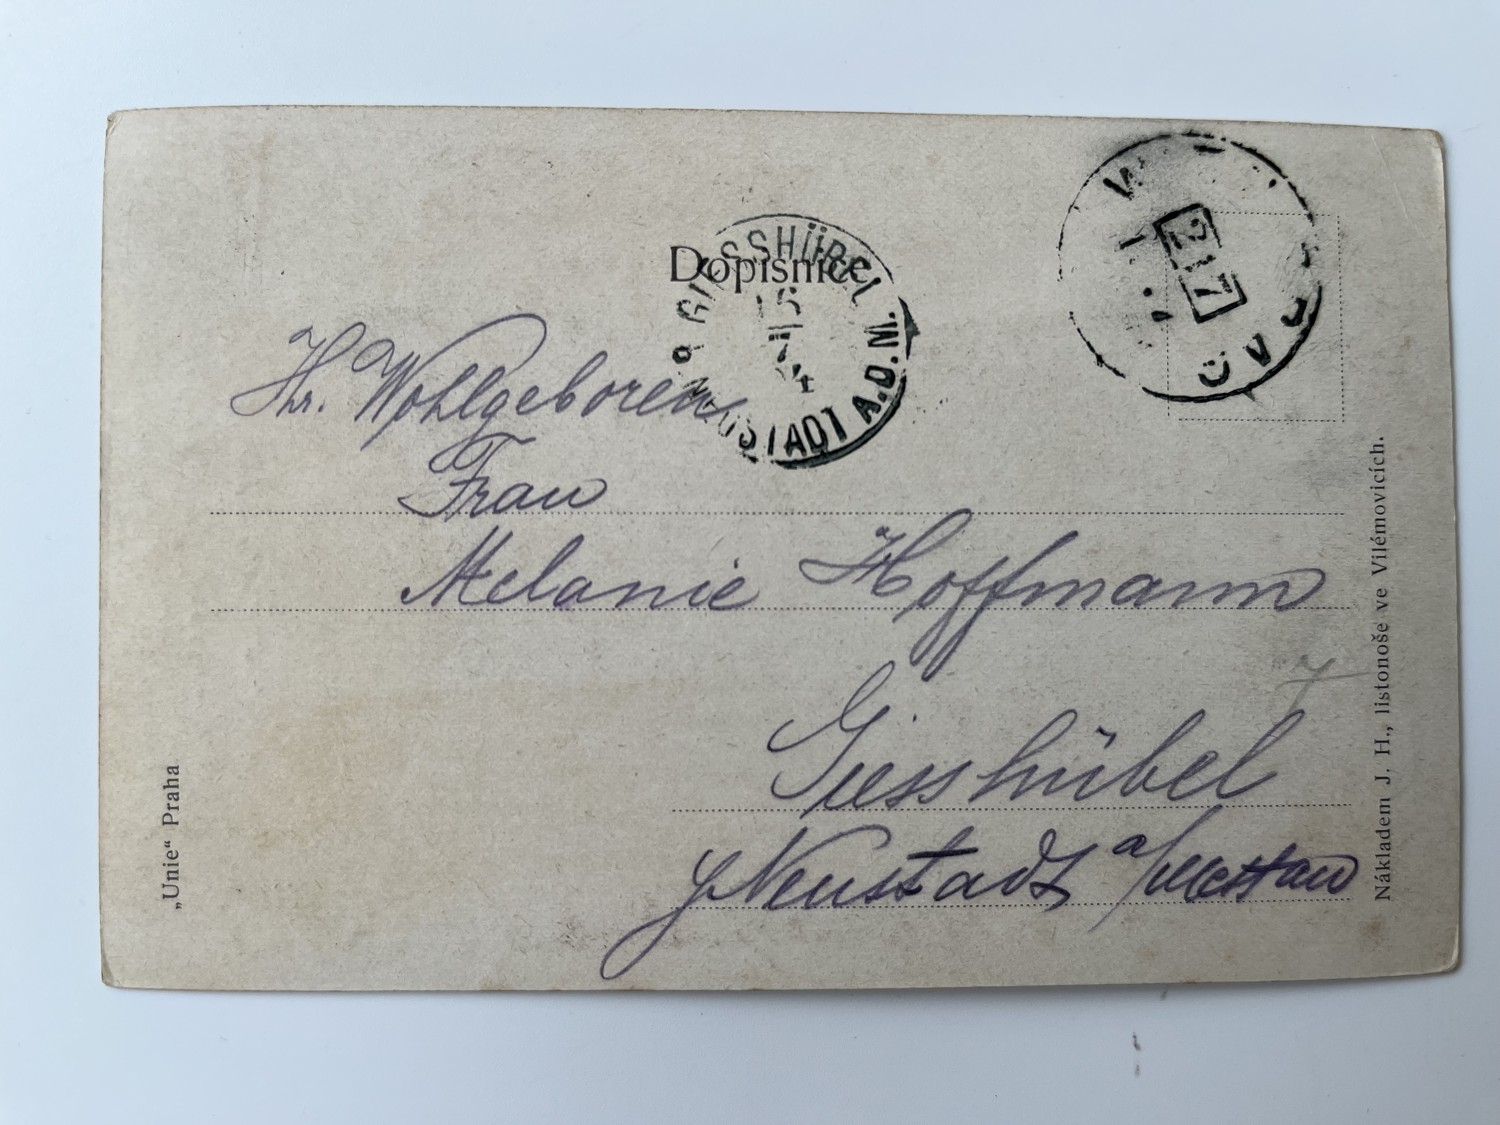 Dopisnice
GIESSHÜBEL
15
7
NEUSTADT A. D. M.
217
Wohlgeboren
Frau
Melanie Hoffmann
Giesshübel
Neustadt a/Mettau
„Unie“ Praha
Nákladem J. H., listonoše ve Vilémovicích.